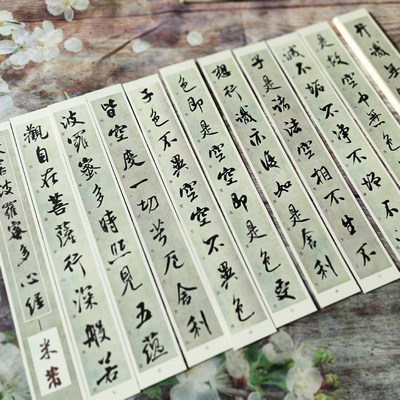 若波羅蜜多心經
米芾
觀自在菩薩行深般若
波羅蜜多時照見五蘊
皆空度一切苦厄舍利
子色不異空空不異色
色即是空空即是色受
想行識亦復如是舍利
子是諸法空相不生不
滅不垢不淨不增不
是故空中無色
識無